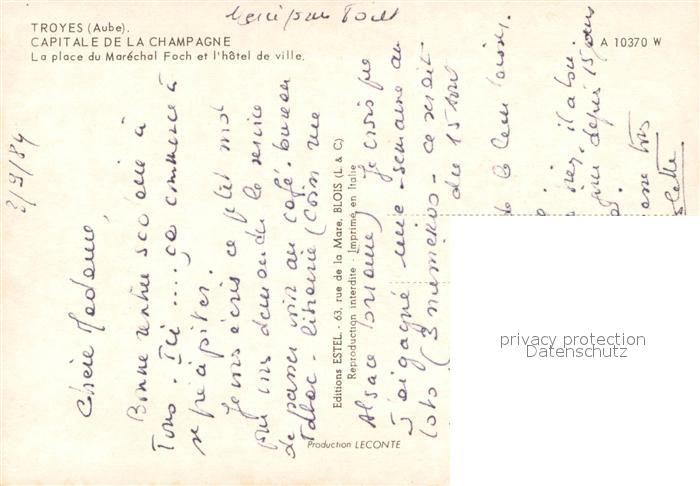 TROYES (Aube).
CAPITALE DE LA CHAMPAGNE
La place du Maréchal Foch et l'hôtel de ville.
A 10370 W
Merci pour Tout
2/9/84
Chère Madame,
Bonne rentrée scolaire à
Tous. Ici .... ça commence à
se précipiter.
Je vous écris ce petit mot
pour vous demander le service
de passer voir au café-bureau
tabac-librairie (Coin rue
Alsace Lorraine) Je crois que
J'ai gagné une semaine au
loto (3 numéros - ce serait
du 15 août
depuis 15 jours
Editions ESTEL - 63, rue de la Mare, BLOIS (L. & C)
Reproduction interdite - Imprimé en Italie
Production LECONTE
privacy protection
Datenschutz